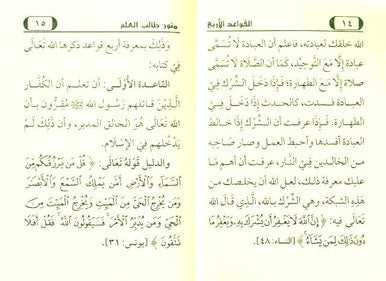 القواعد الأربع
١٤
الله خلقك لعبادته، فاعلم أن العبادة لا تُسمَّى
عبادة إلَّا مَعَ التَّوحِيدِ، كمَا أنَّ الصَّلاة لَا تُسَمَّى
صلاة إلَّا مَعَ الطهارة، فَإذا دَخَلَ الشِّرْك فِي
العبادة فسدت، كالحدث إذَا دَخَلَ فِي
الطهارة. فَإِذَا عرفت أن الشِّرْك إذَا خالط
العبادة أفسدها وأحبط العمل وصار صاحبه
من الخالدين فِي النَّار، عرفت أن أهم مَا
عليك معرفة ذلك، لعل الله أن يخلصك من
هَذِهِ الشبكة، وهي الشِّرْك بالله، الَّذِي قَالَ الله
تَعَالَى فيه: ﴿إِنَّ ٱللَّهَ لَا يَغْفِرُ أَن يُشْرَكَ بِهِۦ وَيَغْفِرُ مَا
دُونَ ذَٰلِكَ لِمَن يَشَآءُ﴾ [النساء: ٤٨].
متون طالب العلم
١٥
وَذَلِكَ بمعرفة أربع قواعد ذكرها الله تَعَالَى
فِي كتابه:
القاعدة الأُولَى: أن تعلم أن الكُفَّار
الَّذِينَ قاتلهم رَسُول الله ﷺ مُقِرُّون بأن
الله تَعَالَى هُوَ الخالق المدبر، وأن ذَلِكَ لَمْ
يدخلهم فِي الإِسْلَام.
والدليل قوله تَعَالَى: ﴿قُلْ مَن يَرْزُقُكُم مِّنَ
ٱلسَّمَآءِ وَٱلْأَرْضِ أَمَّن يَمْلِكُ ٱلسَّمْعَ وَٱلْأَبْصَٰرَ
وَمَن يُخْرِجُ ٱلْحَىَّ مِنَ ٱلْمَيِّتِ وَيُخْرِجُ ٱلْمَيِّتَ مِنَ
ٱلْحَىِّ وَمَن يُدَبِّرُ ٱلْأَمْرَ ۚ فَسَيَقُولُونَ ٱللَّهُ ۚ فَقُلْ أَفَلَا
تَتَّقُونَ﴾ [يونس: ٣١].